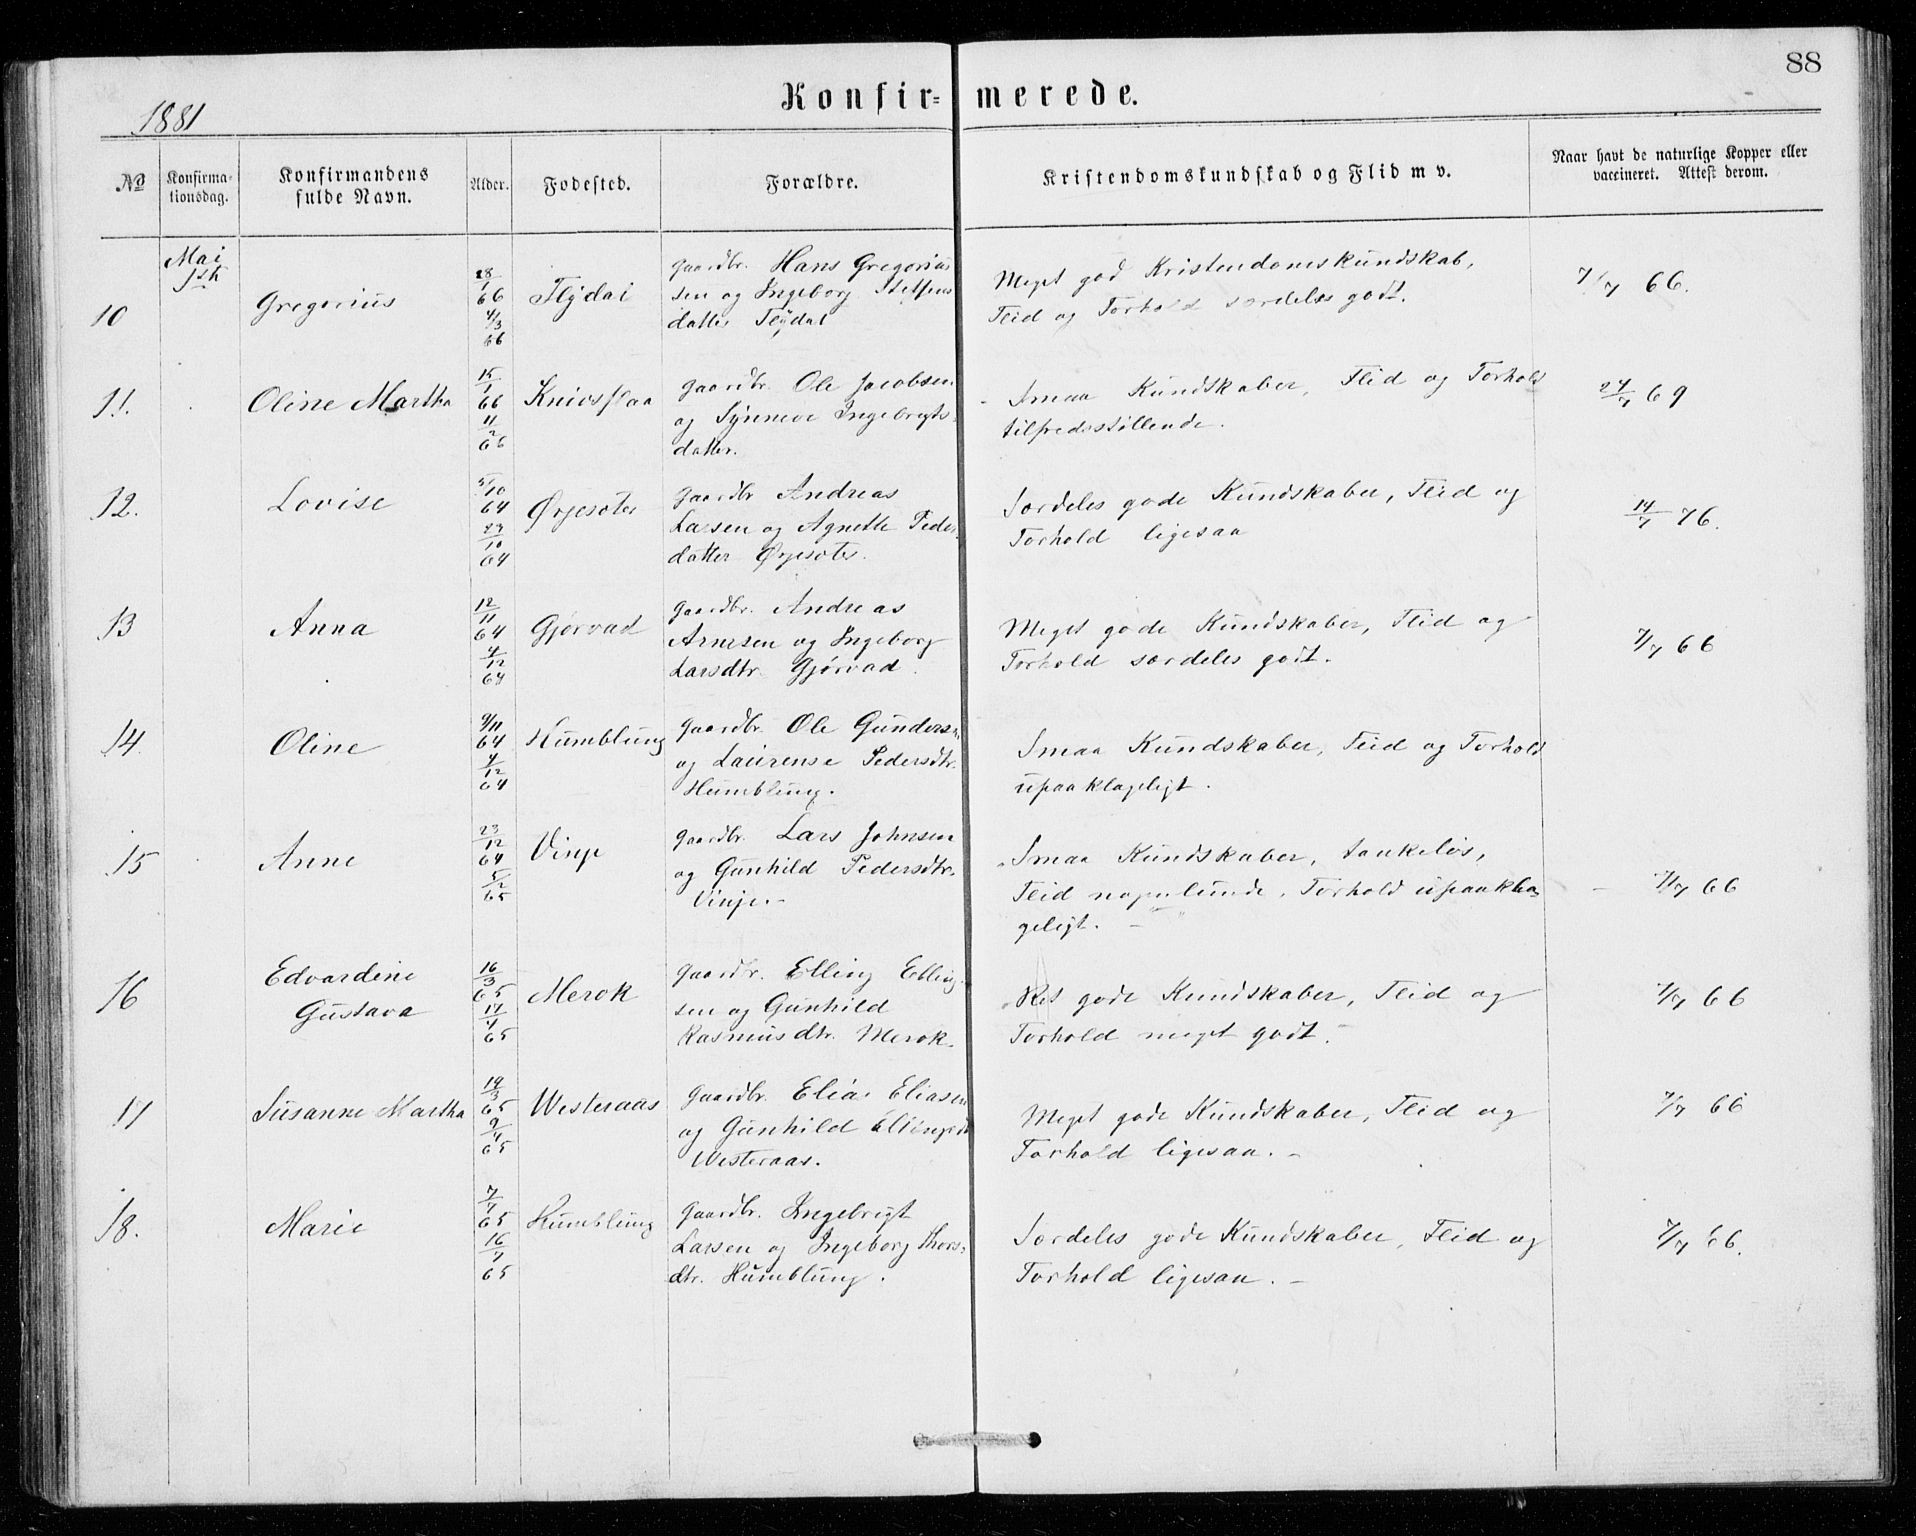 88
Konfir= merede.
1881
No
Konfirma-
tionsdag.
Konfirmandens
fulde Navn.
Alder.
Fodested.
Forældre.
Kristendomskundskab og Flid m v.
Naar havt de naturlige Kopper eller
vaccineret. Attest derom.
Mai
10
Gregorius
28/1 66
4/3 66
Flydal
Gaardbr. Hans Gregorius
sen og Ingeborg Steffens
datter Flydal
Meget god Kristendomskundskab,
Flid og Forhold særdeles godt.
7/7 66.
11.
Oline Martha
15/1 66
11/2 66
Knivsflaa
Gaardbr. Ole Jacobsen
og Synneve Ingebrigts-
datter.
Smaa Kundskaber, Flid og Forhold
tilfredsstillende.
24/7 69
12.
Lovise
5/10 64
23/10 64
Ørjesæter
Gaardbr Andreas
Larsen og Agnethe Peder-
datter Ørjesæter.
Særdeles gode Kundskaber, Flid og
Forhold ligesaa
14/7 76.
13
Anna
12/11 64
4/12 64
Gjørvad
Gaardbr. Andreas
Arnesen og Ingeborg
Larsdtr. Gjørvad.
Meget gode Kundskaber, Flid og
Forhold særdeles godt.
7/7 66
14
Oline
9/11 64
4/12 64
Humblung
Gaardbr Ole Gundersn
og Laurense Pedersdtr.
Humblung.
Smaa Kundskaber, Flid og Forhold
upaaklageligt.
15
Anne
23/12 64
5/2 65
Vinje
Gaardbr. Lars Johnsen
og Gunhild Pedersdtr.
Vinje.-
Smaa Kundskaber, tankeløs,
Flid nogenlunde, Forhold upaakla-
geligt. -
7/7 66
16
Edvardine
Gustava
16/3 65
17/4 65
Merok
Gaardbr. Elling Elling-
sen og Gunhild
Rasmusdtr. Merok.
Ret gode Kundskaber, Flid og
Forhold meget godt.
7/7 66
17
Susanne Martha
19/3 65
9/4 65
Westeraas
Gaardbr. Elias Eliasen
og Gunhild
Westeraas.
Meget gode Kundskaber, Flid og
Forhold ligesaa. -
7/7 66
18.
Marie
7/4 65
16/4 65
Humblung
Gaardbr. Ingebrigt
Larsen og Ingeborg Thors-
dtr. Humblung.
Særdeles gode Kundskaber, Flid og
Forhold ligesaa. -
7/7 66.